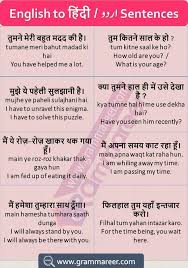 English to हिंदी / اردو Sentences
तुमने मेरी बहुत मदद की है।
tumane meri bahut madad ki
hai
You have helped me a lot.
तुम कितने साल के हो ?
tum kitne saal ke ho ?
How old are you? /
What is your age?
मुझे ये पहेली सुलझानी है।
mujhe ye paheli sulajhani hai.
I have to unravel this enigma.
I have to solve this puzzle.
क्या तुमने हाल ही में उसे देखा
है ?
kya tumne hal hi me use dekha
hai ?
Have you seen him recently?
मैं ये रोज़-रोज़ खाकर थक गया
हूँ।
main ye roz-roz khakar thak
gaya hun
I am fed up of eating it daily.
मैं अपना वक़्त काट रहा हूँ।
main apna waqt kat raha hun.
I am whiling away my time.
I am passing my time.
मैं हमेशा तुम्हारा साथ दूँगा।
main hamesha tumhara saath
dunga
I will always stand by you.
I will always be there with you.
फिलहाल तुम यहाँ इन्तजार
करो।
Filhal tum yahan intazar karo.
For the time being, you wait
here.
www.grammareer.com